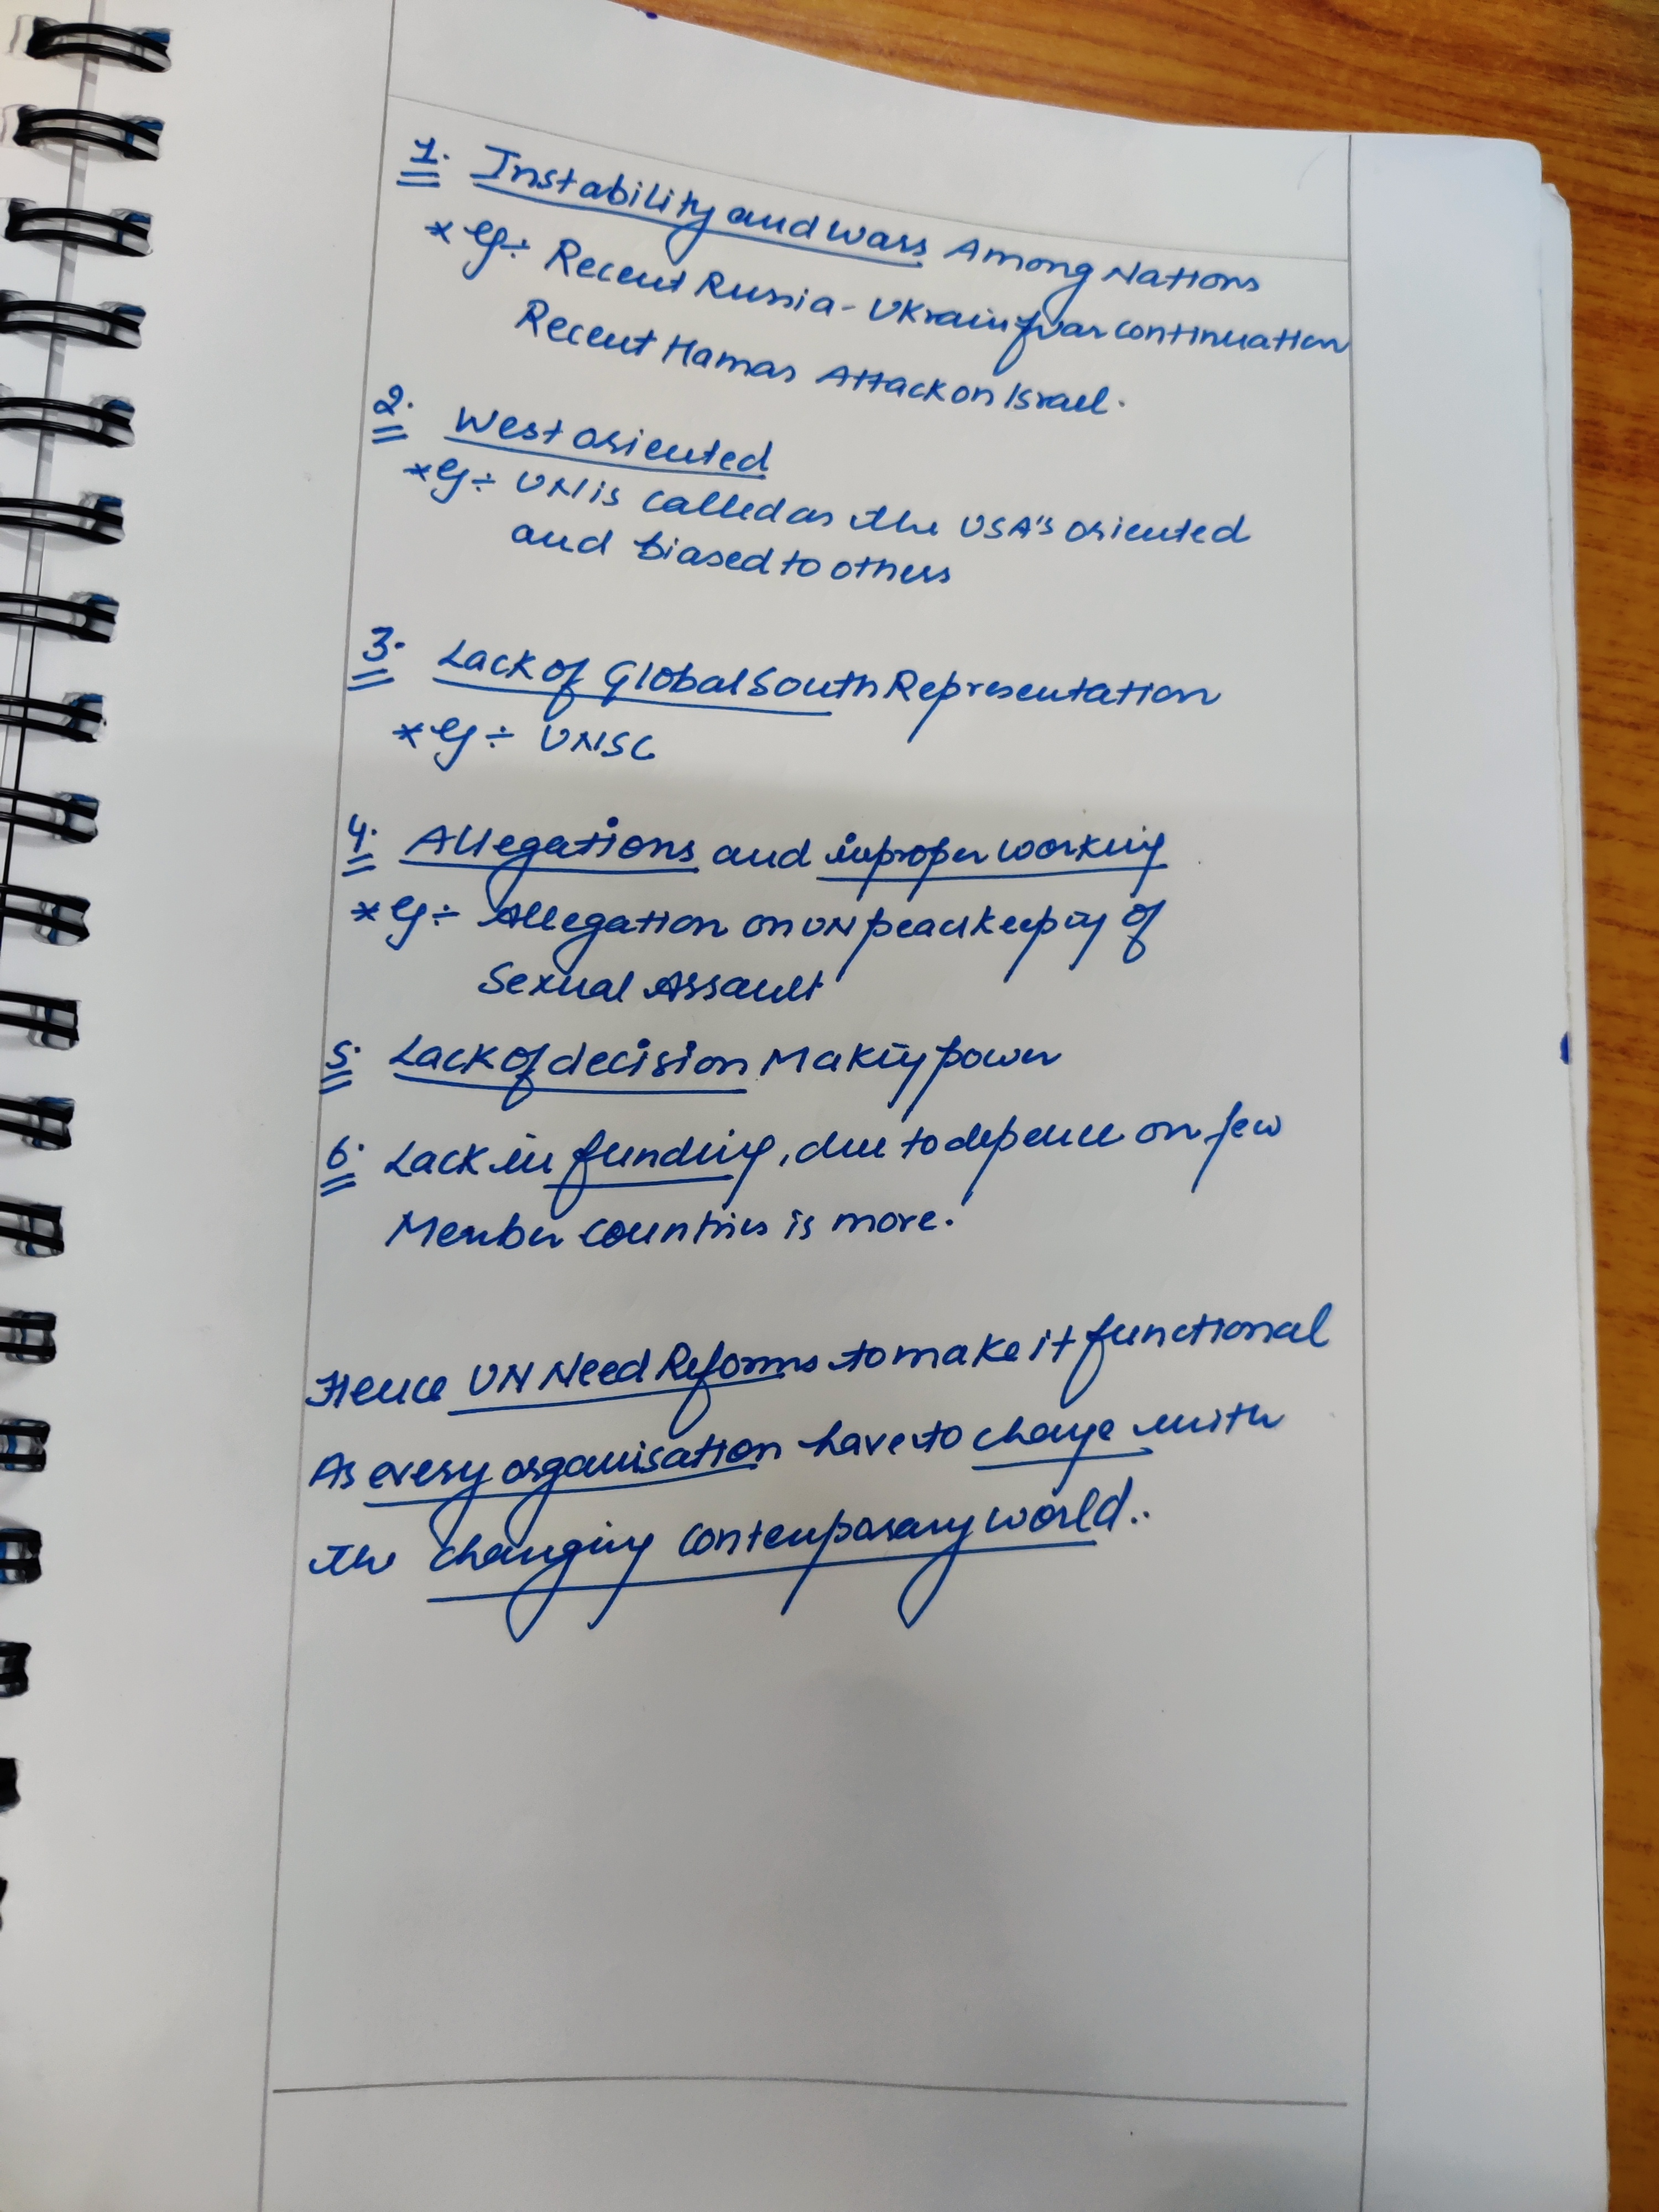 1. Instability and wars Among Nations
* Eg÷ Recent Russia - Ukraine war continuation
Recent Hamas Attack on Israel.
2. West oriented
* Eg÷ UN is called as the USA's oriented
and biased to others
3. Lack of Global South Representation
* Eg÷ UNSC
4. Allegations and improper working
* Eg÷ Allegation on UN peackeeping of
Sexual Assault
5. Lack of decision Making power
6. Lack in funding, due to depence on few
Member countries is more.
Hence UN Need Reforms to make it functional
As every organisation have to change with
the changing contemporary world..